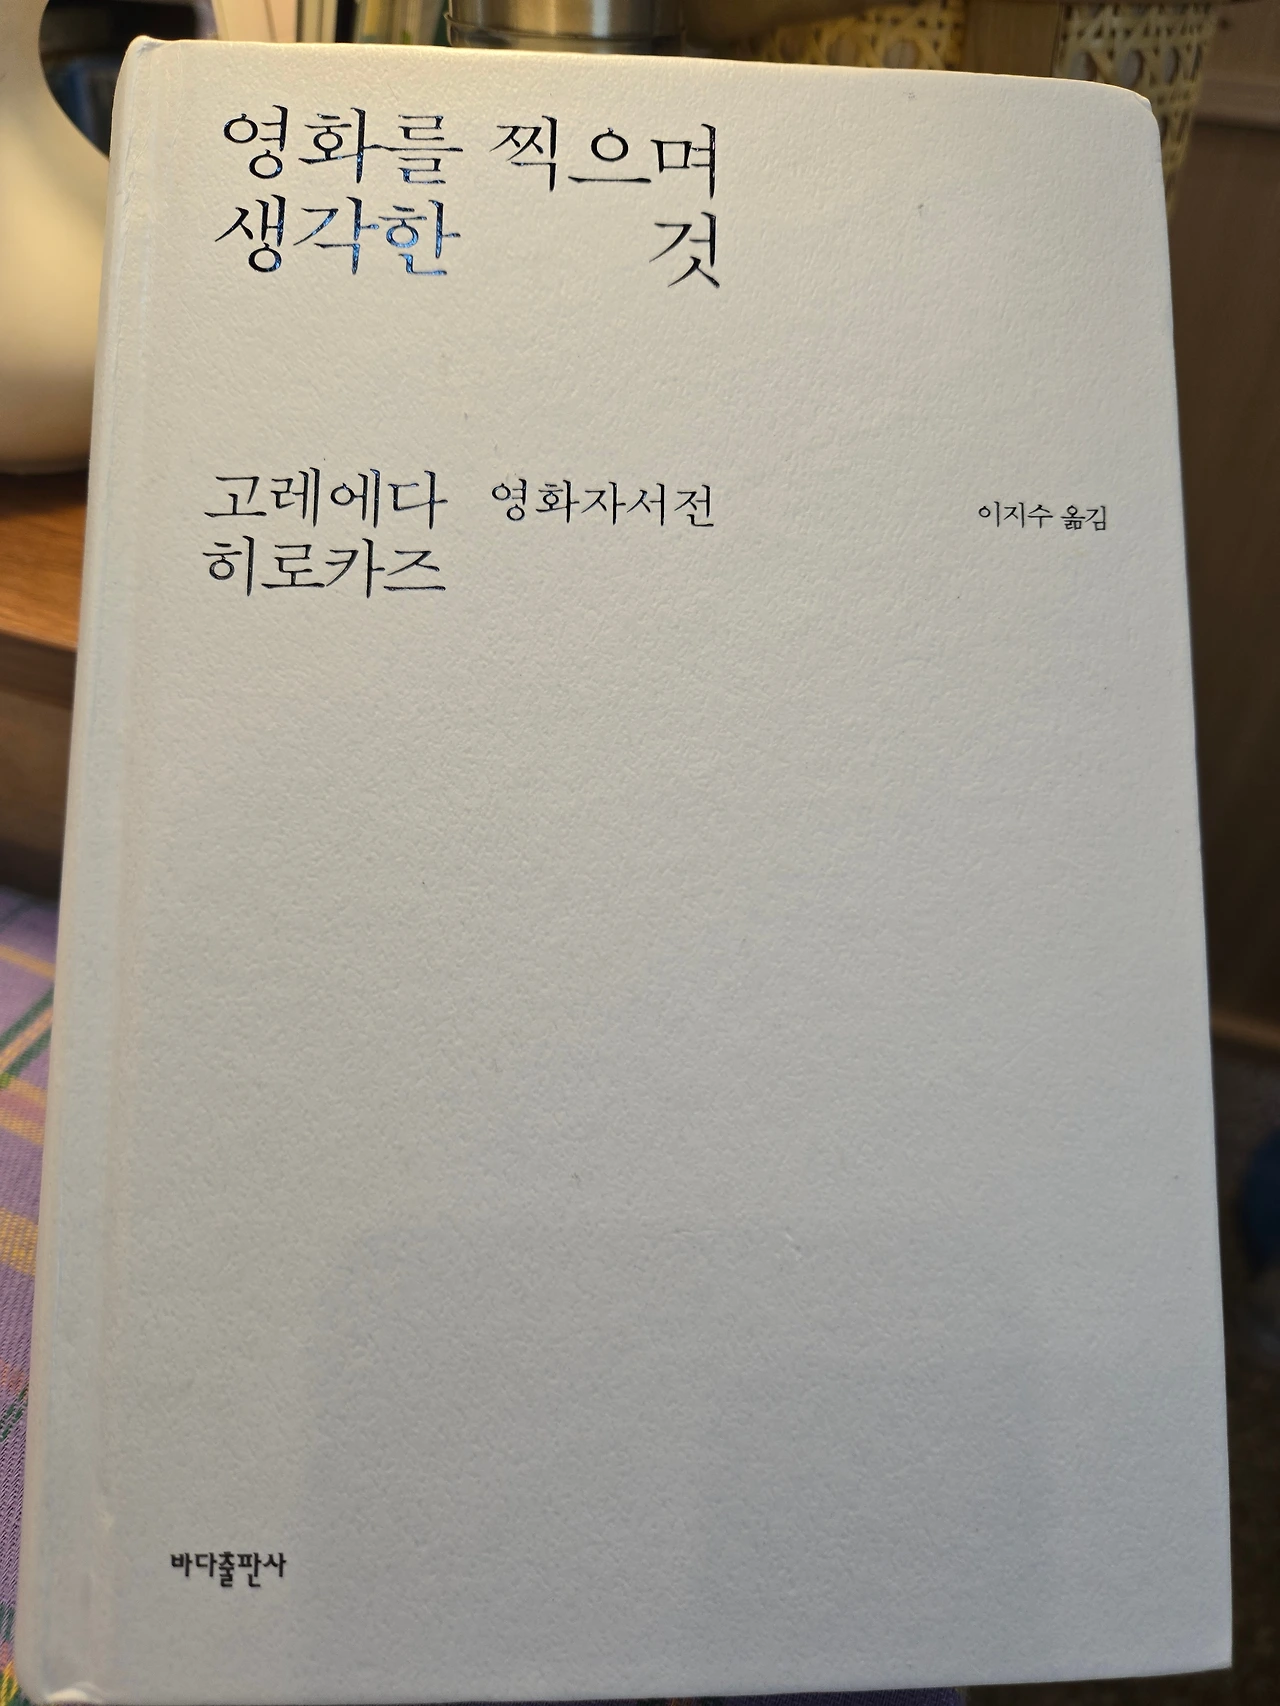 영화를 찍으며
생각한 것
고레에다 영화자서전 이지수 옮김
히로카즈
바다출판사